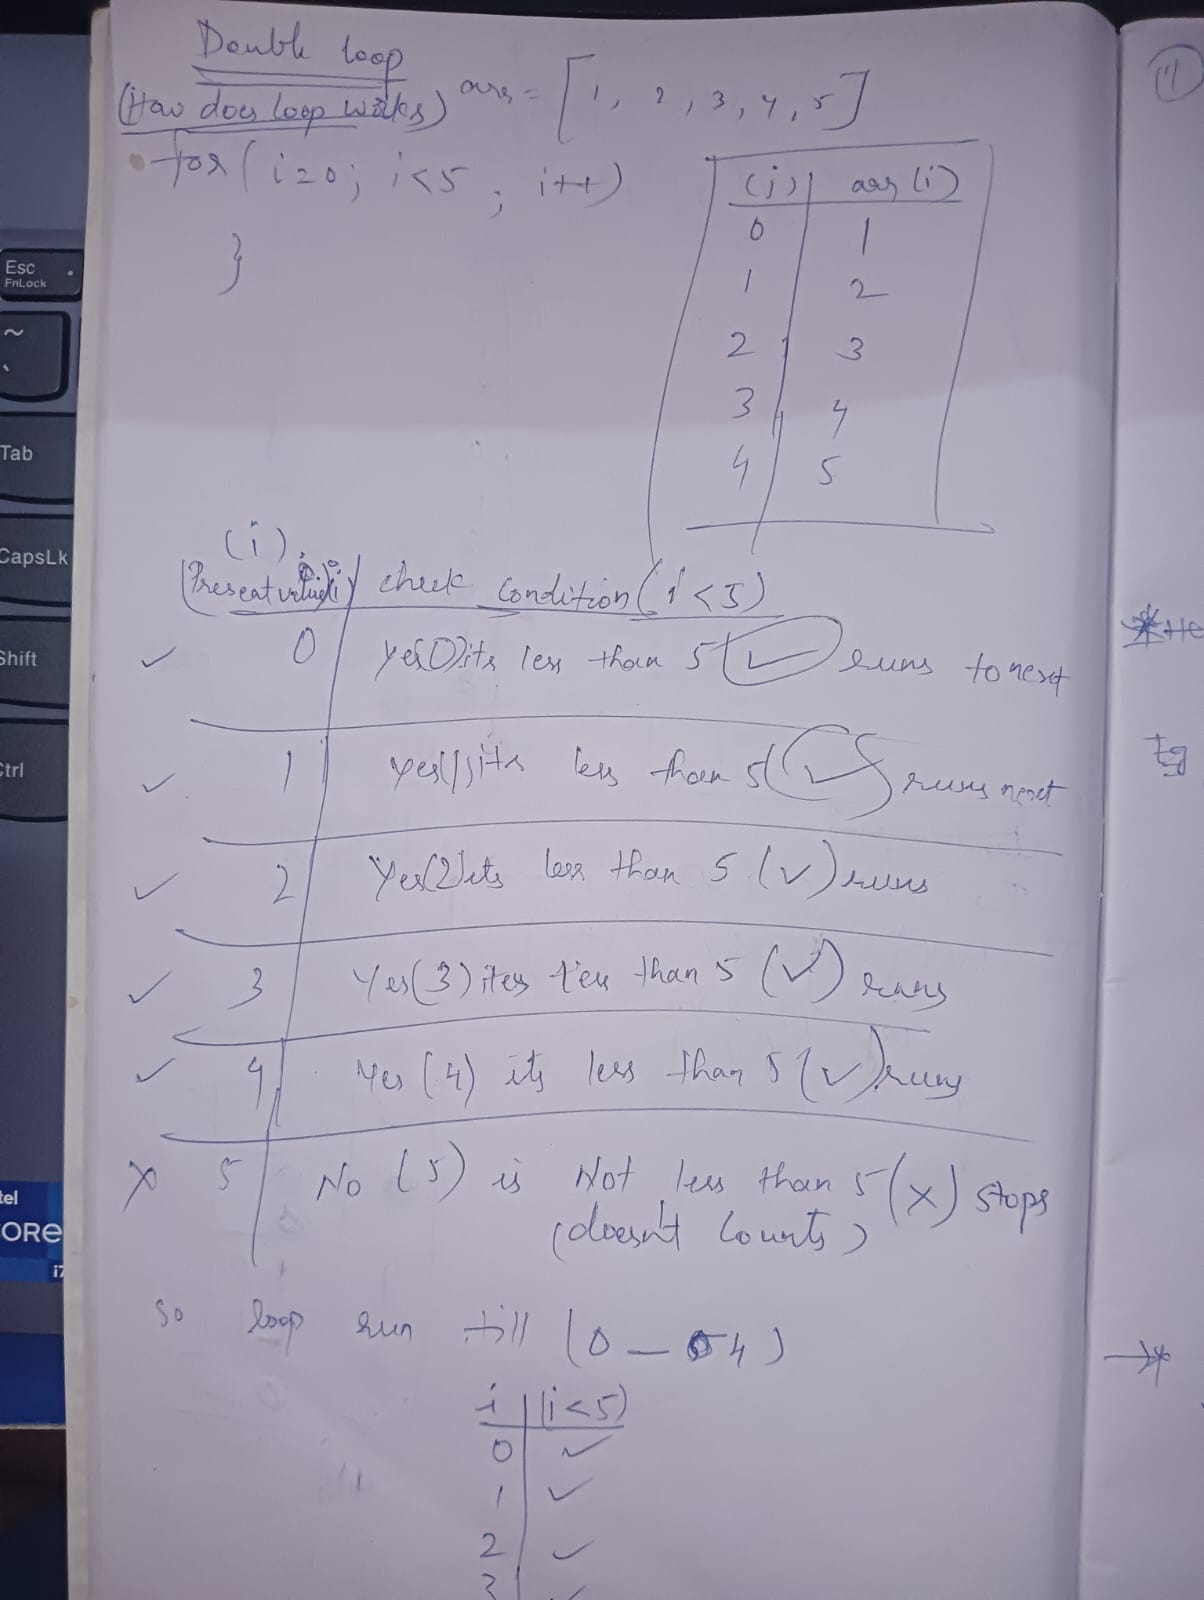 Double loop
(How does loop works) arr = [1, 2, 3, 4, 5]
for ( i=0; i<5 ; i++)
}
(i) arr (i)
0 1
1 2
2 3
3 4
4 5
(i)
(Present value check condition (i<5)
0 yes(0)its less than 5 (✓) runs to next
1 yes(1)its less than 5 (✓) runs next
2 Yes(2)its less than 5 (✓) runs
3 Yes(3) its less than 5 (✓) runs
4 Yes (4) its less than 5 (✓) runs
x 5 No (5) is Not less than 5 (x) stops
(doesn't counts)
so loop run till (0 — 4)
i (i<5)
0 ✓
1 ✓
2 ✓
3 ✓
(1)
Esc
FnLock
~
Tab
CapsLk
Shift
Ctrl
tel
CORE
i7